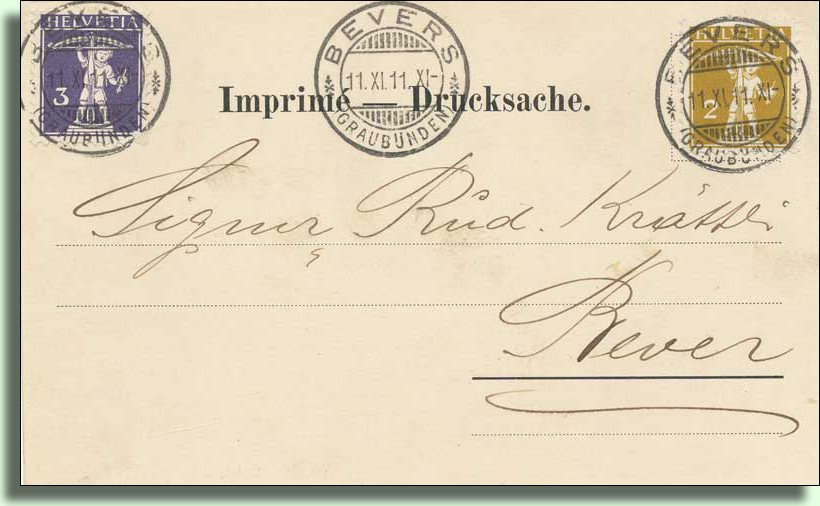 HELVETIA
3
BEVERS
11.XI.11.XI-
(GRAUBÜNDEN)
BEVERS
11.XI.11.XI-
(GRAUBÜNDEN)
HELVETIA
2
BEVERS
11.XI.11.XI-
(GRAUBÜNDEN)
Imprimé — Drucksache.
Signur Rud. Krättli
Bever